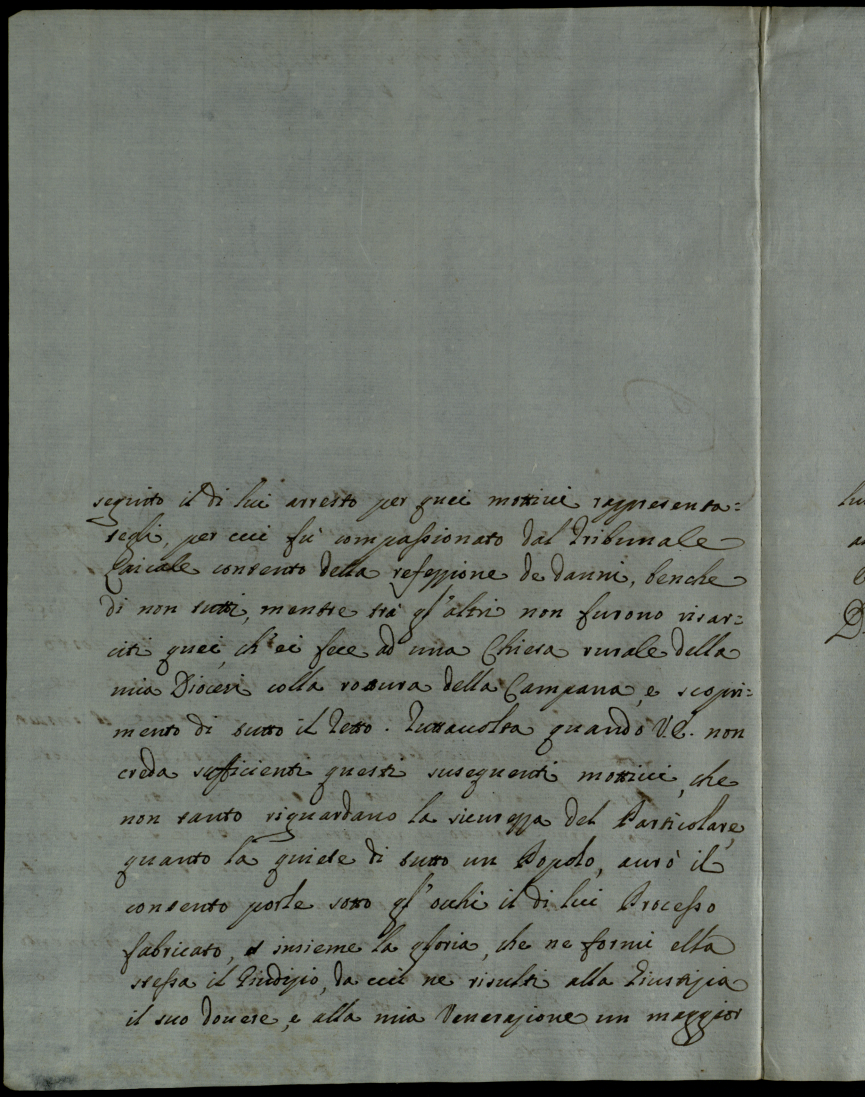 seguito il di lui arresto per quei mottivi rappresenta=
tegli, per cui fù compassionato dal Tribunale
Laicale contento della refezzione de danni, benche
di non tutti, mentre trà gl'altri non furono risar=
citi quei, ch'ei fece ad una Chiesa rurale della
mia Diocesi colla rottura della Campana, e scopri=
mento di tutto il Tetto. Tuttavolta quando V.E. non
creda sufficienti questi susequenti mottivi, che
non tanto riguardano la sicurezza del Particolare,
quanto la quiete di tutto un Popolo, avrò il
contento porle sotto gl'occhi il di lui Processo
fabricato, e insieme la gloria, che ne formi ella
stessa il Giudizio, da cui ne risulti alla Giustizia
il suo dovere, e alla mia Venerazione un maggior